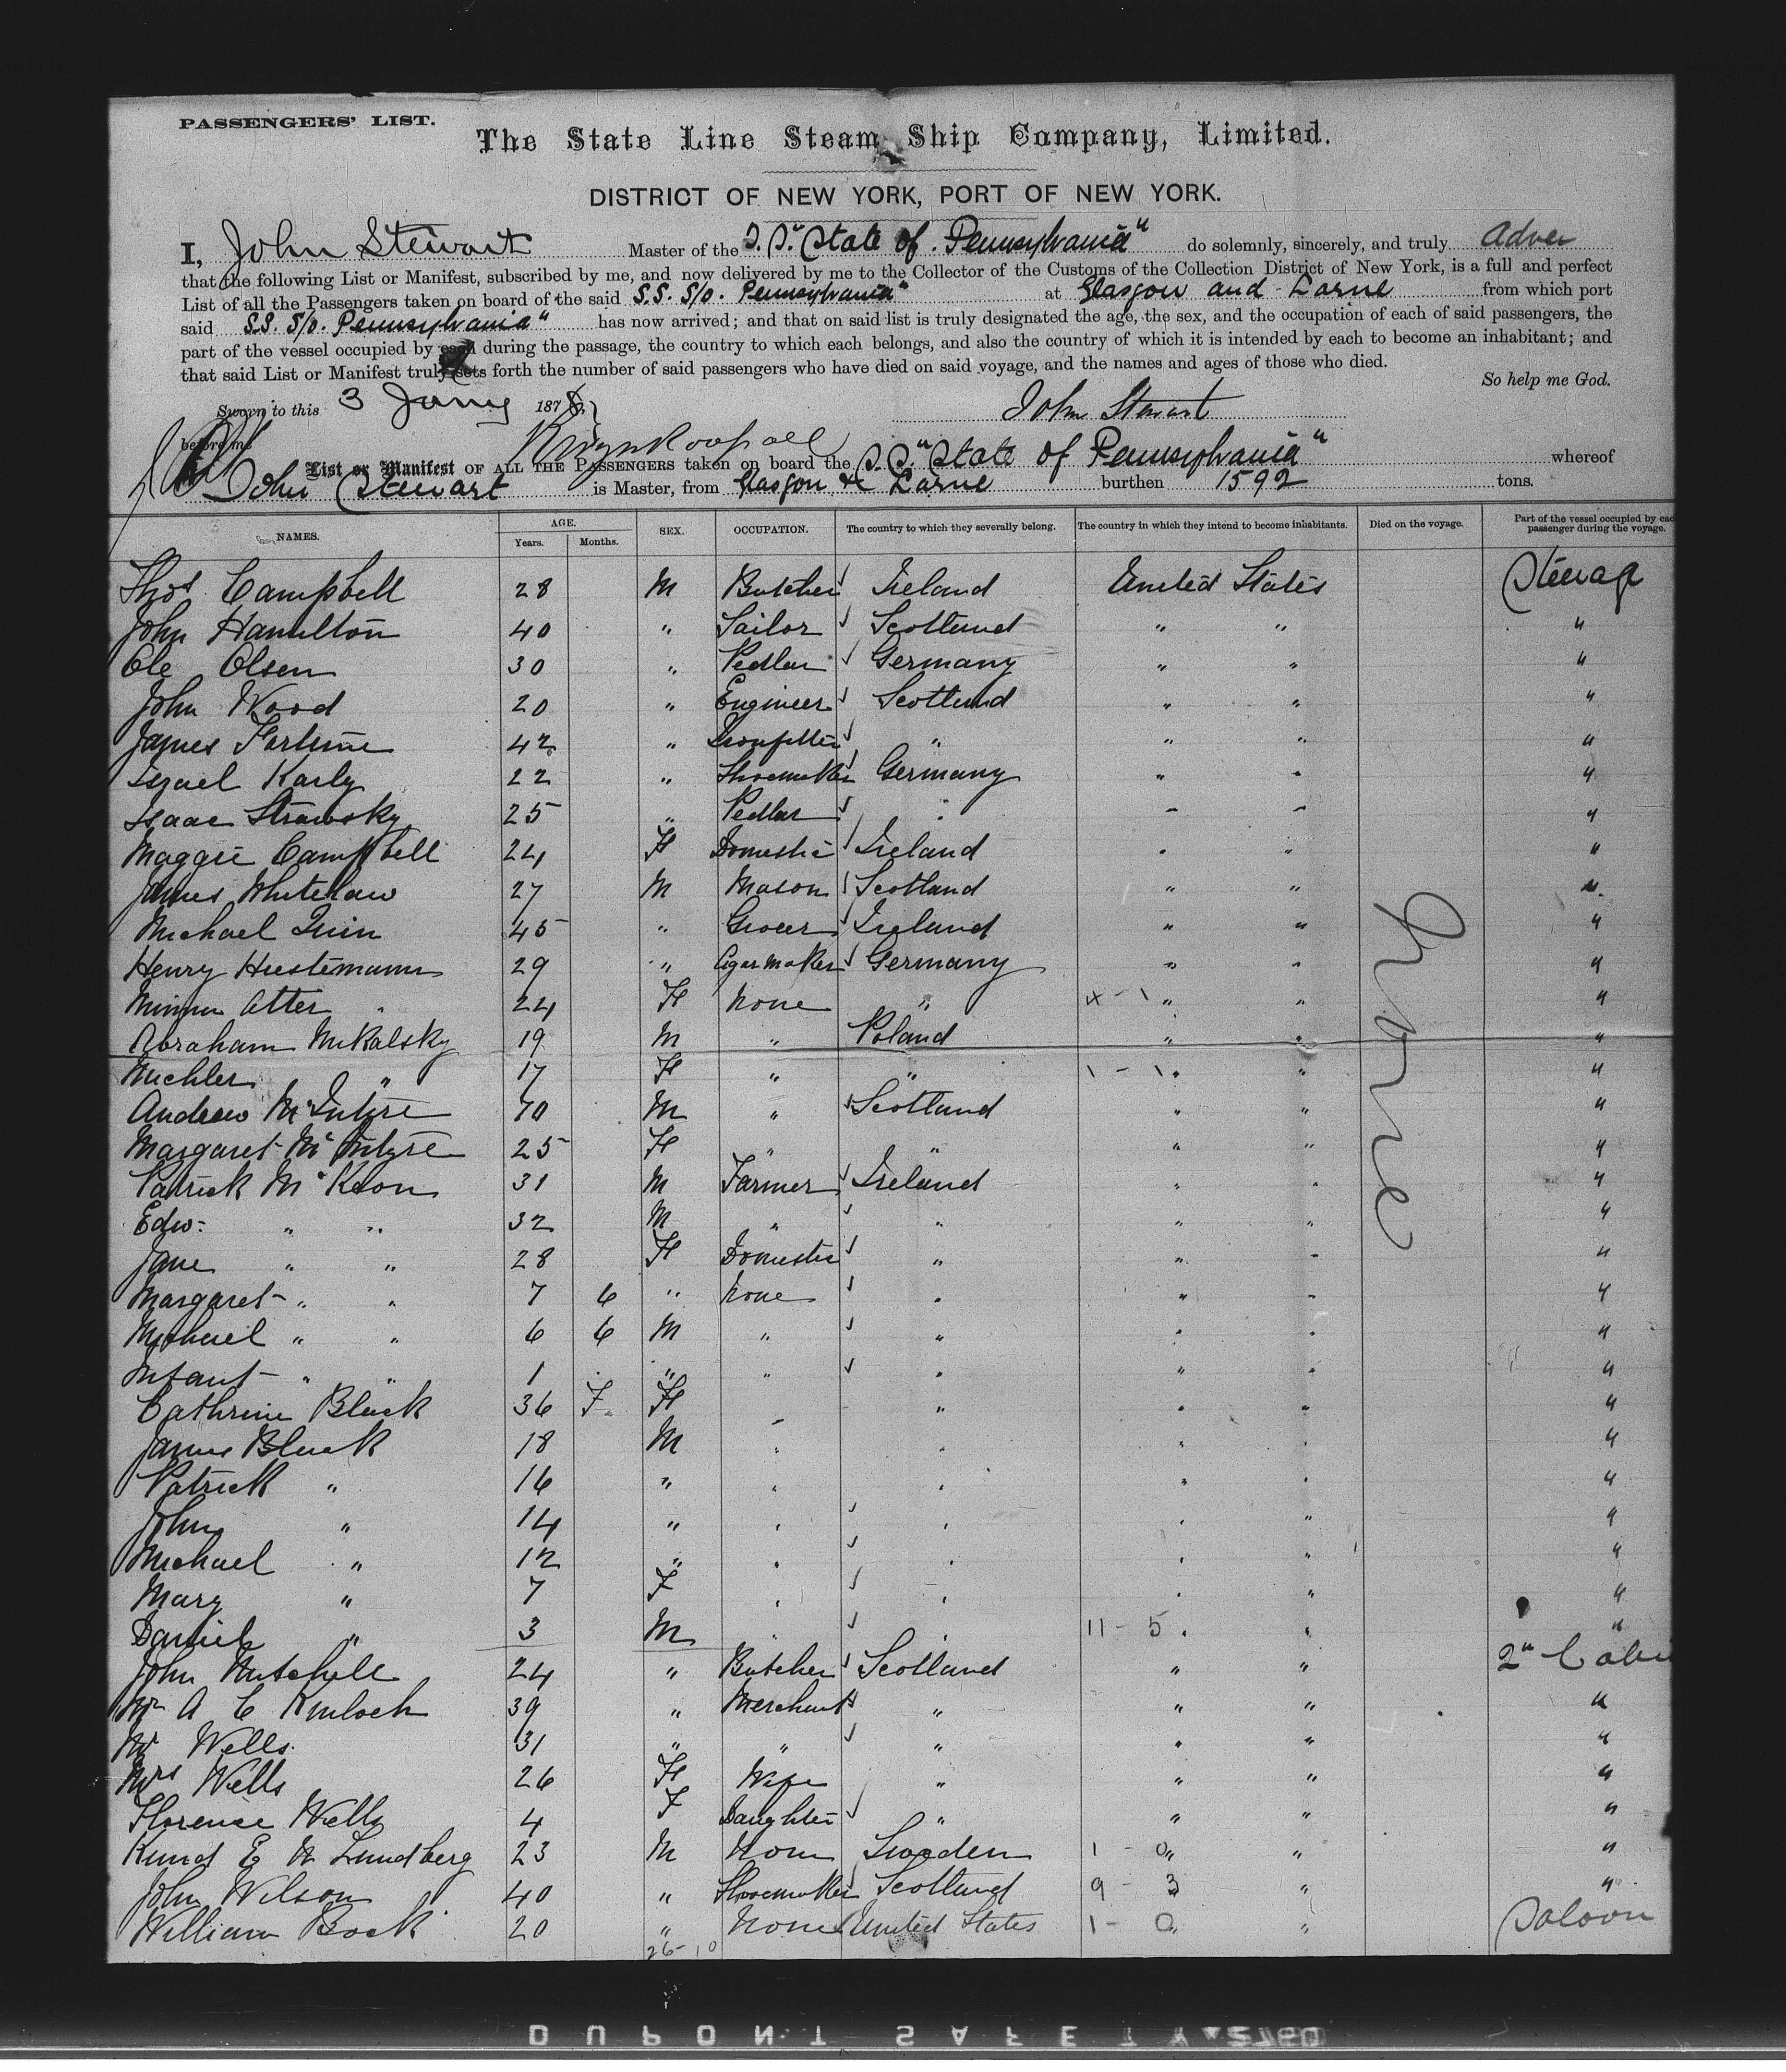 PASSENGERS' LIST.
The State Line Steam Ship Company, Limited.
DISTRICT OF NEW YORK, PORT OF NEW YORK.
I, John Stewart Master of the S.S. "State of Pennsylvania" do solemnly, sincerely, and truly
that the following List or Manifest, subscribed by me, and now delivered by me to the Collector of the Customs of the Collection District of New York, is a full and perfect
List of all the Passengers taken on board of the said S.S. S/o. Pennsylvania" at Glasgow and Larne from which port
said S.S. S/o. Pennsylvania" has now arrived; and that on said list is truly designated the age, the sex, and the occupation of each of said passengers, the
part of the vessel occupied by each during the passage, the country to which each belongs, and also the country of which it is intended by each to become an inhabitant; and
that said List or Manifest truly sets forth the number of said passengers who have died on said voyage, and the names and ages of those who died.
So help me God.
Sworn to this 3 Jany 1878 John Stewart
before me
List or Manifest OF ALL THE PASSENGERS taken on board the S.S. "State of Pennsylvania" whereof
John Stewart is Master, from Glasgow & Larne burthen 1592 tons.
NAMES. AGE. Years. Months. SEX. OCCUPATION. The country to which they severally belong. The country in which they intend to become inhabitants. Died on the voyage. Part of the vessel occupied by each passenger during the voyage.
Thos Campbell 28 M Butcher Ireland United States Steerage
John Hamilton 40 " Sailor Scotland " " "
Ole Olsen 30 " Pedlar Germany " " "
John Wood 20 " Engineer Scotland " " "
James Fortune 42 " " " " "
Israel Karly 22 " Shoemaker Germany " " "
Isaac Strawsky 25 " Pedlar " " " "
Maggie Campbell 24 F Domestic Ireland " " "
James Whitelaw 27 M Mason Scotland " " "
Michael Quin 45 " Grocer Ireland " " "
Henry Hustemann 29 " Cigar maker Germany " " "
Atter 24 F None " " " "
Abraham Mikalsky 19 M " Poland " " "
" 17 F " " 1 - 1 " " "
Andrew McIntyre 70 M " Scotland " " "
Margaret McIntyre 25 F " " " " "
Patrick McKeon 31 M Farmer Ireland " " "
Edw: " " 32 M " " " " "
Jane " " 28 F Domestic " " " "
Margaret " " 7 6 " None " " " "
Michael " " 6 6 M " " " " "
Infant " " 1 " " " " " "
Cathrine Black 36 F F " " " "
James Black 18 M " " " " "
Patrick " 16 " " " " " "
John " 14 " " " " " "
Michael " 12 " " " " " "
Mary " 7 F " " " " "
Daniel " 3 M " " 11 - 5 " " "
John Mitchell 24 " Butcher Scotland " " 2" Cabin
Mr A C Kinloch 39 " Merchant " " " "
Mr Wells 31 " " " " " "
Mrs Wells 26 F Wife " " " "
Florence Wells 4 F Daughter " " " "
Knud E N Lundberg 23 M None Sweden 1 - 0 " " "
John Wilson 40 " Shoemaker Scotland 9 - 3 " "
William Bock 20 " None United States 1 - 0 " " Saloon
26-10
None
DUPONT SAFETY 2760